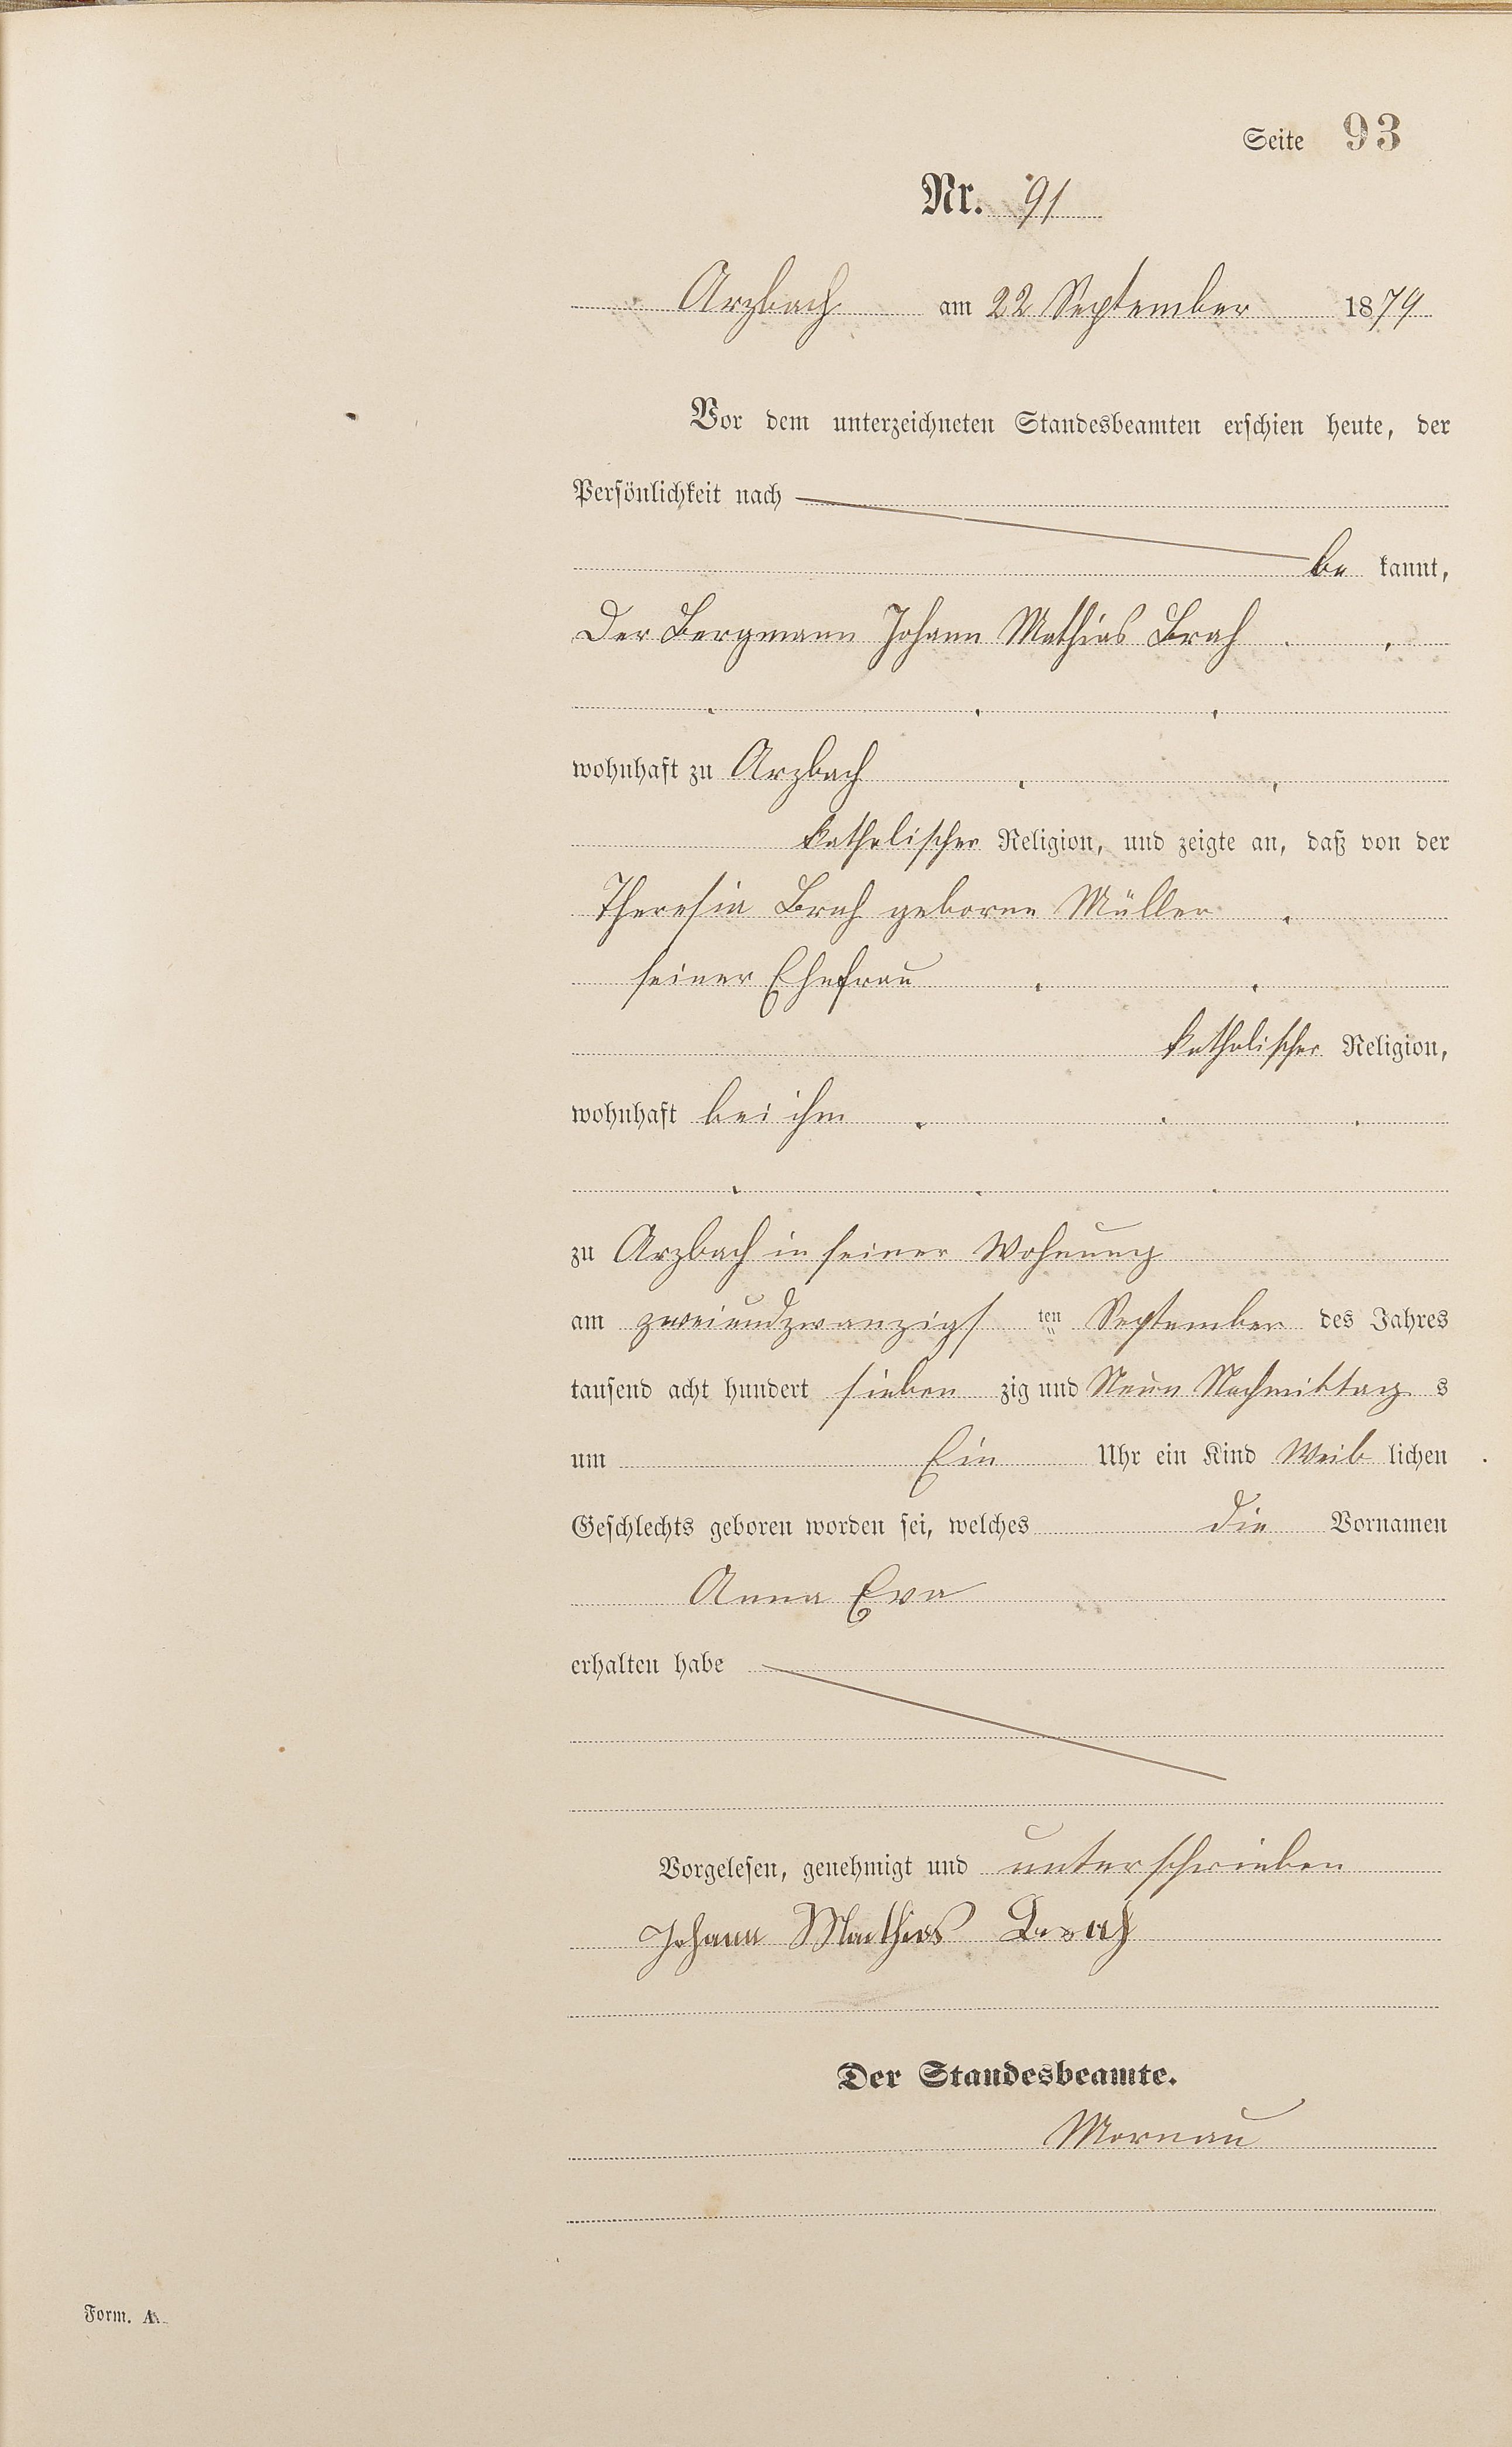 Seite 93
Nr. 91
Arzbach am 22 September 1879
Vor dem unterzeichneten Standesbeamten erschien heute, der
Persönlichkeit nach
be kannt,
Der Bergmann Johann Mathias Brah
wohnhaft zu Arzbach
katholischer Religion, und zeigte an, daß von der
Theresia Brah geborne Müller
seiner Ehefrau
katholischer Religion,
wohnhaft bei ihm
zu Arzbach in seiner Wohnung
am zweiundzwanzigs ten September des Jahres
tausend acht hundert sieben zig und Neun Nachmittag s
um Ein Uhr ein Kind Weib lichen
Geschlechts geboren worden sei, welches die Vornamen
Anna Eva
erhalten habe
Vorgelesen, genehmigt und unterschrieben
Johann Mathias Brah
Der Standesbeamte.
Mornau
Form. A.